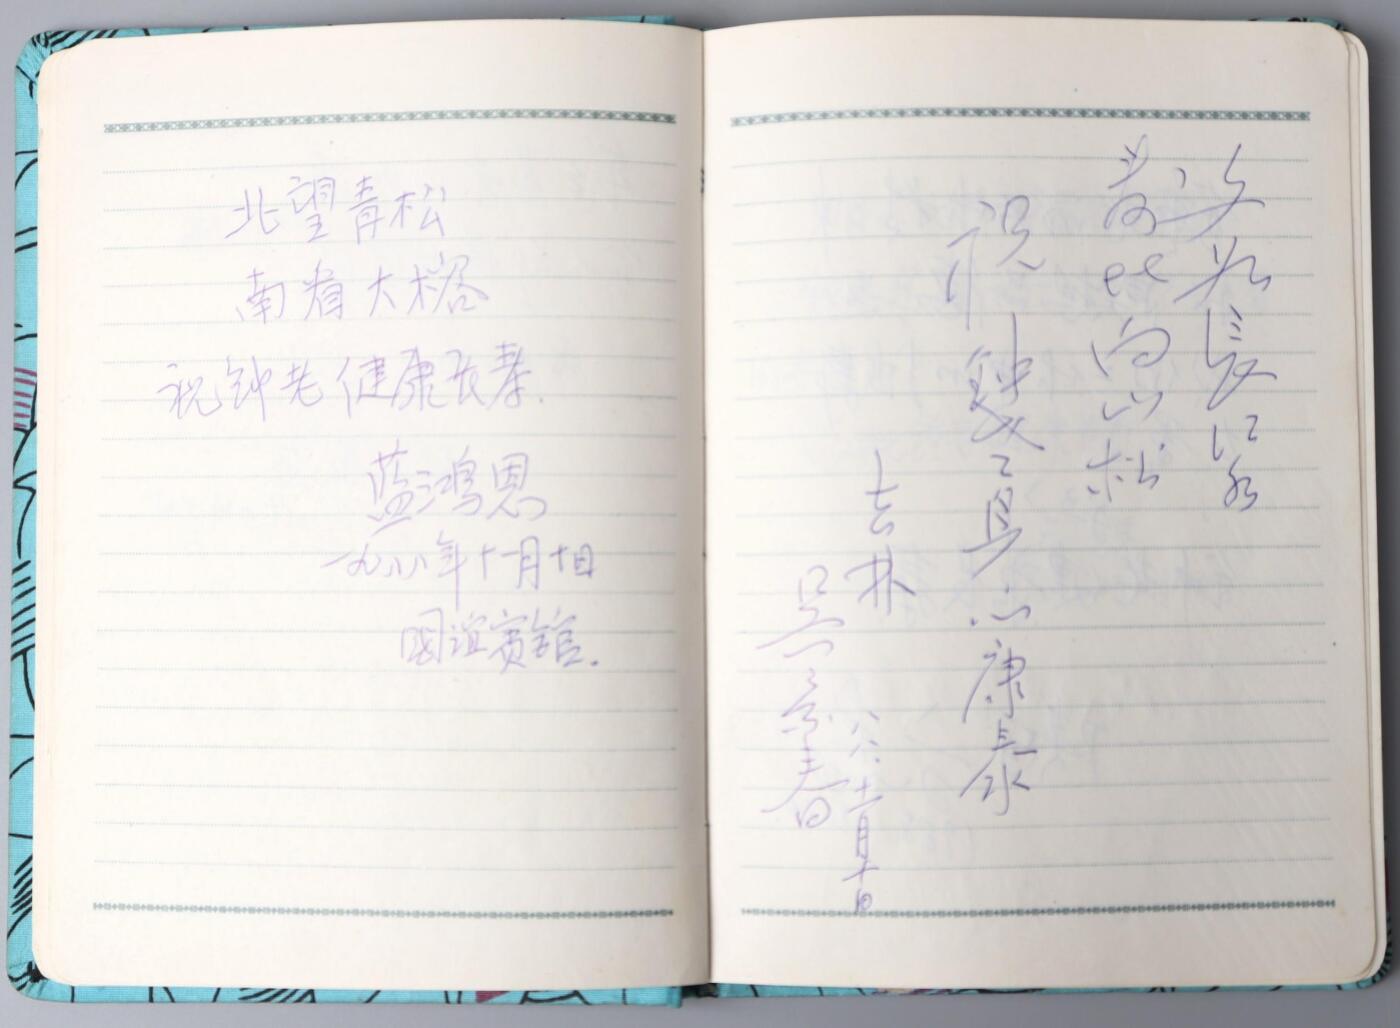 北望青松
南看大榕
祝钟老健康长寿.
蓝鸿恩
一九八八年十一月十日
国谊宾馆.
文如長江水
寿比白山松
祝鍾老身心康泰
吉林
吴景春
八八、十一月十日